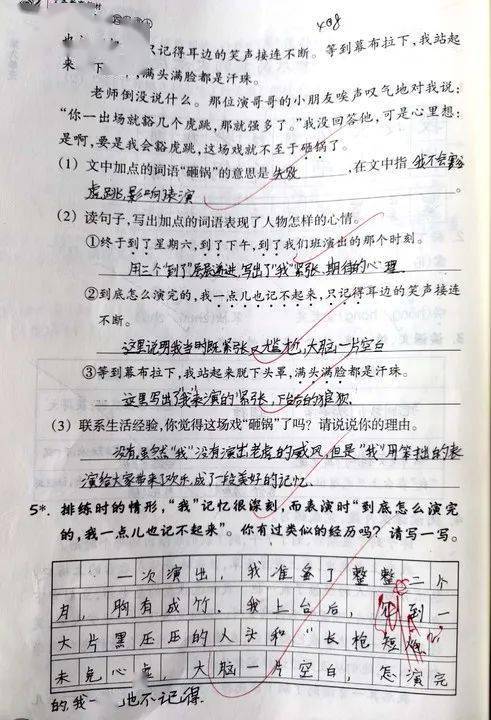 408
只记得耳边的笑声接连不断。等到幕布拉下,我站起
来 下 ,满头满脸都是汗珠。
老师倒没说什么。那位演哥哥的小朋友唉声叹气地对我说:
“你一出场就豁几个虎跳,那就强多了。”我没回答他,可是心里想:
是啊,要是我会豁虎跳,这场戏就不至于砸锅了。
(1) 文中加点的词语“砸锅”的意思是失败,在文中指我不会豁
虎跳,影响表演。
(2) 读句子,写出加点的词语表现了人物怎样的心情。
①终于到了星期六,到了下午,到了我们班演出的那个时刻。
用三个“到了”层层递进,写出了“我”紧张、期待的心理.
②到底怎么演完的,我一点儿也记不起来,只记得耳边的笑声接连
不断。
这里说明我当时既紧张又尴尬,大脑一片空白
③等到幕布拉下,我站起来脱下头罩,满头满脸都是汗珠。
这里写出了我表演的紧张,下台后的狼狈.
(3) 联系生活经验,你觉得这场戏“砸锅”了吗?请说说你的理由。
没有,虽然“我”没有演出老虎的威风,但是“我”用笨拙的表
演给大家带来了欢乐,成了一段美好的记忆.
5*. 排练时的情形,“我”记忆很深刻,而表演时“到底怎么演完
的,我一点儿也记不起来”。你有过类似的经历吗?请写一写。
一次演出,我准备了整整二个
月,胸有成竹.我上台后, 到一
大片黑压压的人头和“长枪短
未免心 ,大脑一片空白,怎演完
的,我一 也不记得.